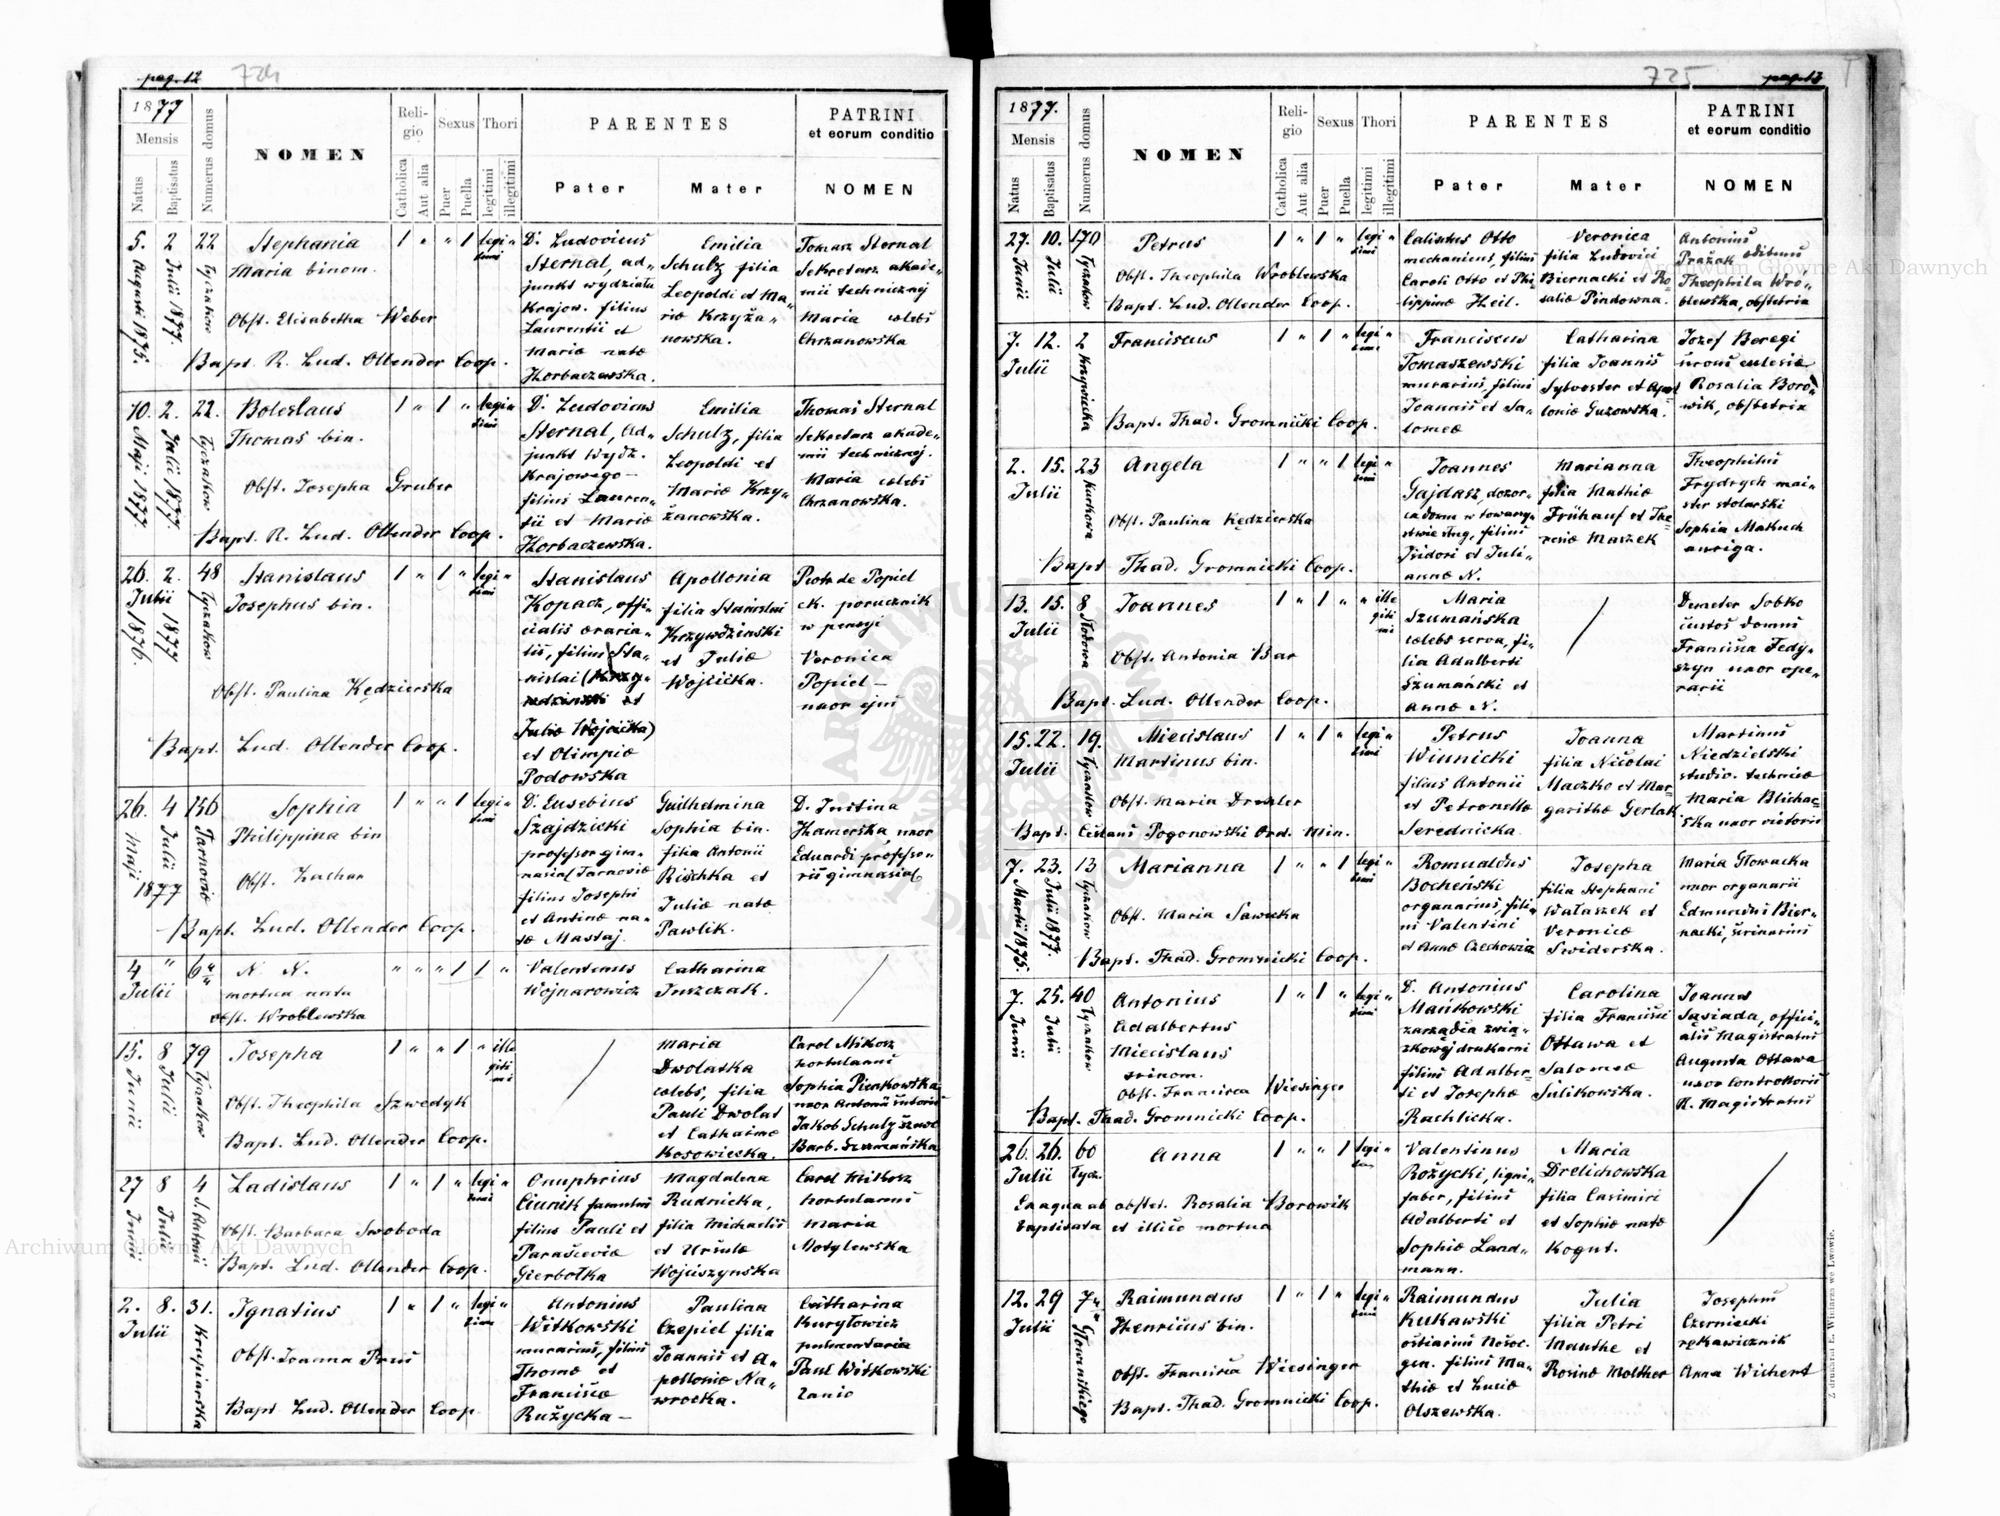 pag. 12 724
1877
Mensis
Natus
Baptisatus
Numerus domus
NOMEN
Religio
Catholica
Aut alia
Sexus
Puer
Puella
Thori
legitimi
illegitimi
PARENTES
Pater
Mater
PATRINI
et eorum conditio
NOMEN
5. Augusti 1875.
2 Julii 1877.
22 Tyczakow
Stephania
Maria binom.
Obst. Elisabetha Weber
Bapt. R. Lud. Ollender Coop.
1 " " 1 legitimi "
D. Ludovicus
Sternal, ad=
junkt wydziału
Krajow. filius
Laurentii et
Mariæ natæ
Horbaczewska.
Emilia
Schulz filia
Leopoldi et Ma=
riæ Krzyża=
nowska.
Tomasz Sternal
Sekretarz akade=
mii technicznej
Maria cælebs
Chrzanowska
10. Maji 1877.
2. Julii 1877.
22. Tyczakow
Boleslaus
Thomas bin.
Obst. Josepha Gruber
Bapt. R. Lud. Ollender Coop.
1 " 1 " legitimi "
D. Ludovicus
Sternal, Ad=
junkt Wydz.
Krajowego—
filius Lauren=
tii et Mariæ
Horbaczewska.
Emilia
Schulz, filia
Leopoldi et
Mariæ Krzy=
żanowska.
Thomas Sternal
Sekretarz akade=
mii technicznej.
Maria cælebs
Chrzanowska.
26. Julii 1876.
2. Julii 1877
48 Tyczakow
Stanislaus
Josephus bin.
Obst. Paulina Kędzierska
Bapt. Lud. Ollender Coop.
1 " 1 " legitimi "
Stanislaus
Kopacz, offi=
cialis æraria=
lis, filius Sta=
nislai (Krzy=
wdzinski et
Juliæ Wojcicka)
et Olimpiæ
Podowska
Apollonia
filia Stanislai
Krzywdzinski
et Juliæ
Wojcicka.
Piotr de Popiel
ck. porucznik
w pensyi
Veronica
Popiel—
uxor ejus
26. Maji 1877
4 Julii
156 Tarnoviæ
Sophia
Philippina bin
Obst. Zachar
Bapt. Lud. Ollender Coop.
1 " " 1 legitimi "
D. Eusebius
Szajdzicki
professor gim=
nasial Tarnoviæ
filius Josephi
et Antinæ na=
tæ Mastaj.
Guilhelmina
Sophia bin.
filia Antonii
Rischka et
Juliæ natæ
Pawlik.
D. Justina
Hamerska, uxor
Eduardi professo=
ris gimnasial
4 Julii
"
6
N. N.
mortua nata
obst. Wroblewska
" " " 1 1 "
Valentinus
Wojnarowicz
Catharina
Juszczak.
15. Junii
8 Julii
79 Tyczakow
Josepha
Obst. Theophila Szwedyk
Bapt. Lud. Ollender Coop.
1 " " 1 " illegitimi
Maria
Dwolatka
cælebs, filia
Pauli Dwolat
et Catharinæ
Kosowieska.
Carol Mikosz
hortulanus
Sophia Pienkowska
uxor Antonii sutoris
Jakob Schulz
Barb. Szumańska
27 Junii
8 Julii
4 S. Antonii
Ladislaus
Obst. Barbara Swoboda
Bapt. Lud. Ollender Coop.
1 " 1 " legitimi "
Onuphrius
Ciunik famulus
filius Pauli et
Parasceviæ
Gierbotka
Magdalena
Rudnicka,
filia Michaelis
et Ursulæ
Wojciszynska
Carol Mikosz
hortulanus
Maria
Motylewska
2. Julii
8.
31. Krupiarska
Ignatius
Obst. Joanna Prus
Bapt Lud. Ollender Coop.
1 " 1 " legitimi "
Antonius
Witkowski
murarius, filius
Thomæ et
Franciscæ
Rużycka—
Paulina
Czepiel filia
Joannis et A=
polloniæ Na=
wrocka.
Catharina
Kuryłowicz
Paul Witkowski
lanio
725 pag. 13
1877.
Mensis
Natus
Baptisatus
Numerus domus
NOMEN
Religio
Catholica
Aut alia
Sexus
Puer
Puella
Thori
legitimi
illegitimi
PARENTES
Pater
Mater
PATRINI
et eorum conditio
NOMEN
27. Junii
10. Julii
170 Tyczakow
Petrus
Obst. Theophila Wroblewska
Bapt. Lud. Ollender Coop.
1 " 1 " legitimi "
Calixtus Otto
mechanicus, filius
Caroli Otto et Phi
lippinæ Heil.
Veronica
filia Ludovici
Biernacki et Ro=
saliæ Pindowna.
Antonius
Pražak ædituus
Theophila Wro=
blewska, obstetrix
7. Julii
12.
2 Krzywiecka
Franciscus
Bapt. Thad. Gromnicki Coop.
1 " 1 " legitimi "
Franciscus
Tomaszewski
murarius, filius
Joannis et Sa=
lomeæ
Catharina
filia Joannis
Sylvester et Apol
loniæ Guzowska.
Jozef Beregi
Rosalia Boro=
wik, obstetrix
2. Julii
15.
23 Kurkowa
Angela
Obst. Paulina Kędzierska
Bapt Thad. Gromnicki Coop.
1 " " 1 legitimi "
Joannes
Gajdasz, dozor=
ca domu w towarzy=
stwie
Isidori et Juli=
annæ N.
Marianna
filia Mathiæ
Frühauf et The=
resiæ Maszek
Theophilus
Frydrych maj=
ster stolarski
Sophia Makuch
auriga.
13. Julii
15.
8 Słodowa
Joannes
Obst. Antonia Bar
Bapt. Lud. Ollender Coop.
1 " 1 " " illegitimi
Maria
Szumańska
cælebs serva, fi=
lia Adalberti
Szumański et
Annæ N.
Demeter Sobko
custos domus
Francisca Fedy=
szyn uxor ope=
rarii
15. Julii
22.
19. Tyczakow
Miecislaus
Martinus bin.
Obst. Maria Drexler
Bapt. Cislaus Pogonowski Ord. Min.
1 " 1 " legitimi "
Petrus
Winnicki
filius Antonii
et Petronellæ
Serednicka.
Joanna
filia Nicolai
Maczko et Mar=
garithæ Gerlak
Martinus
Niedzielski
studio. technicæ
Maria Blichar=
ska uxor rictoris
7. Martii 1875.
23. Julii 1877.
13 Tyczakow
Marianna
Obst. Maria Sawicka
Bapt. Thad. Gromnicki Coop.
1 " " 1 legitimi "
Romualdus
Bocheński
organarius, fili=
us Valentini
et Annæ Czechowia
Josepha
filia Stephani
Wałaszek et
Veronicæ
Swiderska.
Maria Głowacka
uxor organarii
Edmundus Bier=
nacki,
7. Junii
25. Julii
40 Tyczakow
Antonius
Adalbertus
Miecislaus
trinom.
Obst. Francisca Wiesinger
Bapt. Thad. Gromnicki Coop.
1 " 1 " legitimi "
D. Antonius
Mańkowski
zarządca zwią=
zkowej drukarni
filius Adalber=
ti et Josephæ
Rachlicka.
Carolina
filia Francisci
Ottawa et
Salomeæ
Sulikowska.
Joannes
Sasiada, offici=
alis Magistratus
Augusta Ottawa
uxor Controlloris
R. Magistratus
26. Julii
26.
60 Tycz.
Anna
Ex aqua ab obstet. Rosalia Borowik
baptisata et illico mortua
1 " " 1 legitimi "
Valentinus
Rożycki, ligni=
faber, filius
Adalberti et
Sophiæ Land=
mann.
Maria
Drelichowska
filia Casimiri
et Sophiæ natæ
Kogut.
12. Julii
29
7 Głowińskiego
Raimundus
Henricus bin.
Obst. Francisca Wiesinger
Bapt. Thad. Gromnicki Coop.
1 " 1 " legitimi "
Raimundus
Kukawski
ostiarius
gen. filius Ma=
thiæ et Luciæ
Olszewska.
Julia
filia Petri
Mauthe et
Rosinæ Molther
Josephus
Czerniecki
rękawicznik
Anna Wichert
Z drukarni E. Winiarza we Lwowie.
Archiwum Główne Akt Dawnych
Archiwum Główne Akt Dawnych
ARCHIWUM GŁÓWNE AKT DAWNYCH